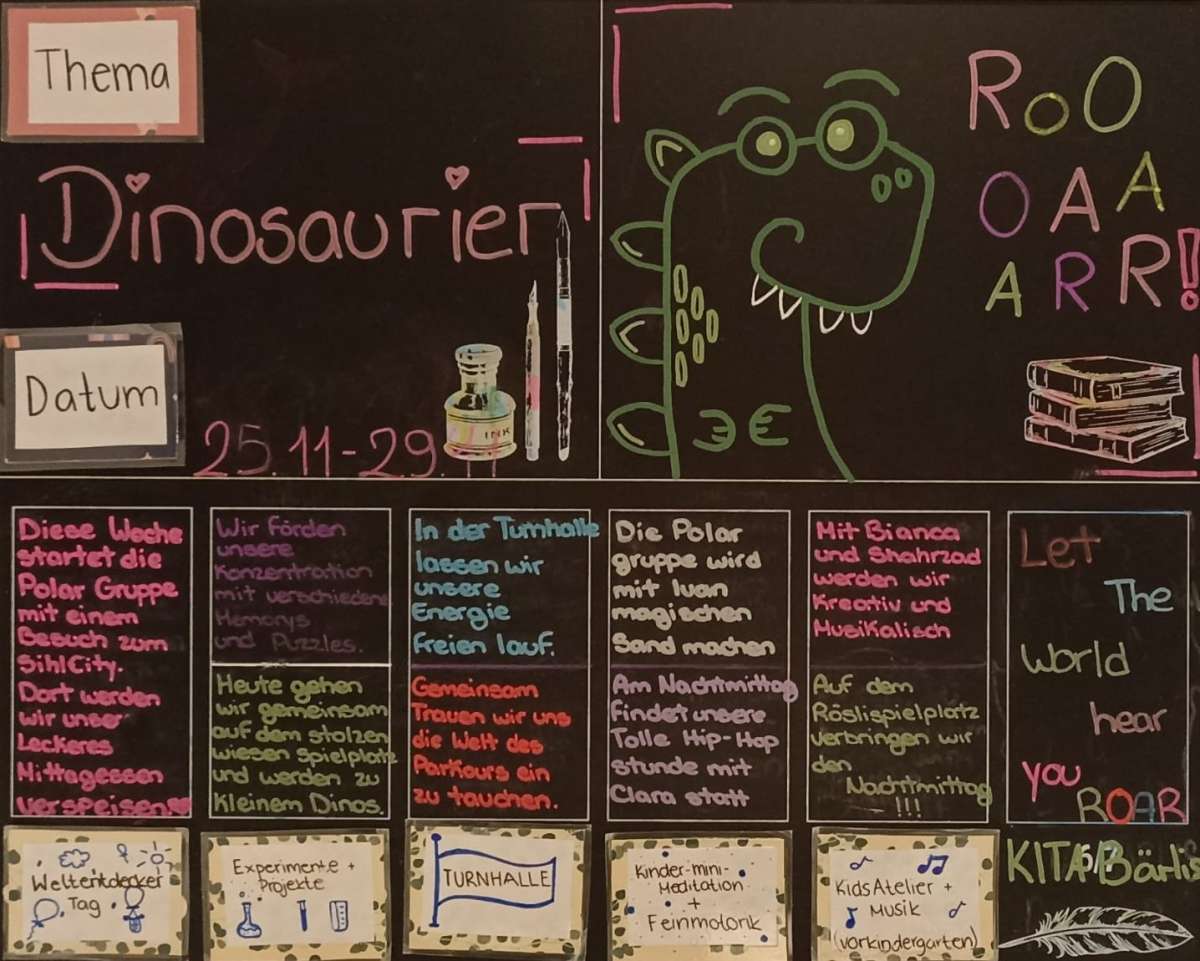 Thema
Dinosaurier
Datum
25.11-29.11
INK
RoO
OAA
ARR!
Diese Woche
startet die
Polar Gruppe
mit einem
Besuch zum
SihlCity.
Dort werden
wir unser
Leckeres
Mittagessen
verspeisen.
Wir förden
unsere
Konzentration
mit verschiedene
Memorys
und Puzzles.
Heute gehen
wir gemeinsam
auf dem stolzen
wiesen spielplatz
und werden zu
kleinem Dinos.
In der Turnhalle
lassen wir
unsere
Energie
freien lauf.
Gemeinsam
Trauen wir uns
die Welt des
Parkours ein
zu tauchen.
Die Polar
gruppe wird
mit Ivan
magischen
Sand machen
Am Nachtmittag
findet unsere
Tolle Hip-Hop
stunde mit
Clara statt
Mit Bianca
und Shahrzad
werden wir
Kreativ und
Musikalisch
Auf dem
Röslispielplatz
verbringen wir
den
Nachtmittag
!!!
Let
The
World
hear
you
ROAR
Weltentdecker
Tag
Experimente +
Projekte
TURNHALLE
Kinder-mini-
Meditation
+
Feinmotorik
KidsAtelier +
Musik
(vorkindergarten)
KITA Bärlis